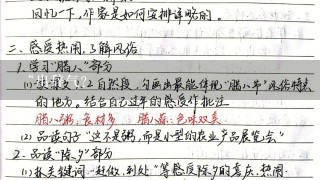 回忆一下,作家是如何安排详略的。
二、感受热闹,了解风俗
1.学习"腊八"部分
(1) 读课文1、2自然段,勾画出最能体现"腊八节"风俗特点
的地方。结合自己过年的感受作批注
腊八粥:食材多 腊八蒜:色味双美
(2) 品读句子"这不是粥,而是小型的农业产品展览会"
2.品读"除夕"部分
(1) 抓关键词,"赶做,到处"等感受除夕的喜庆、热闹